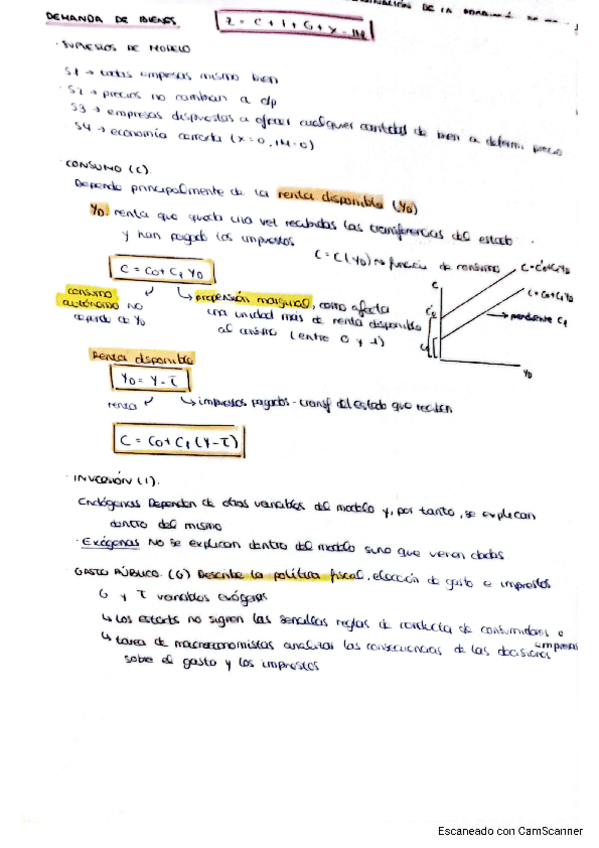 DE LA
DEMANDA DE BIENES. Z = C + I + G + X - IM
· SUPUESTOS DE MODELO
S1 → todas empresas mismo bien
S2 → precios no cambian a c/p
S3 → empresas dispuestas a ofrecer cualquier cantidad de bien a determ. precio
S4 → economía cerrada (X=0, IM=0)
· CONSUMO (C).
Depende principalmente de la renta disponible (YD)
YD: renta que queda una vez recibidas las transferencias del estado
y han pagado los impuestos
C = C(YD) función de consumo
C = C0 + C1 YD
consumo autónomo no depende de YD
propensión marginal, como afecta
una unidad más de renta disponible
al consumo (entre 0 y 1)
C
C = C'0 + C1YD
C = C0 + C1YD
C'0
→ pendiente C1
YD
Renta disponible
YD = Y - T
renta ↳ impuestos pagados - transf del estado que reciben
C = C0 + C1 (Y - T)
· INVERSIÓN (I).
Endógenas Dependen de otras variables del modelo y, por tanto, se explican
dentro del mismo
· Exógenas No se explican dentro del modelo sino que vienen dadas
· GASTO PÚBLICO. (G) Describe la política fiscal, elección de gasto e impuestos
G y T variables exógenas
↳ Los estados no siguen las sencillas reglas de conducta de consumidores o
empresas
↳ tarea de macroeconomistas analizar las consecuencias de las decisiones
sobre el gasto y los impuestos
Escaneado con CamScanner